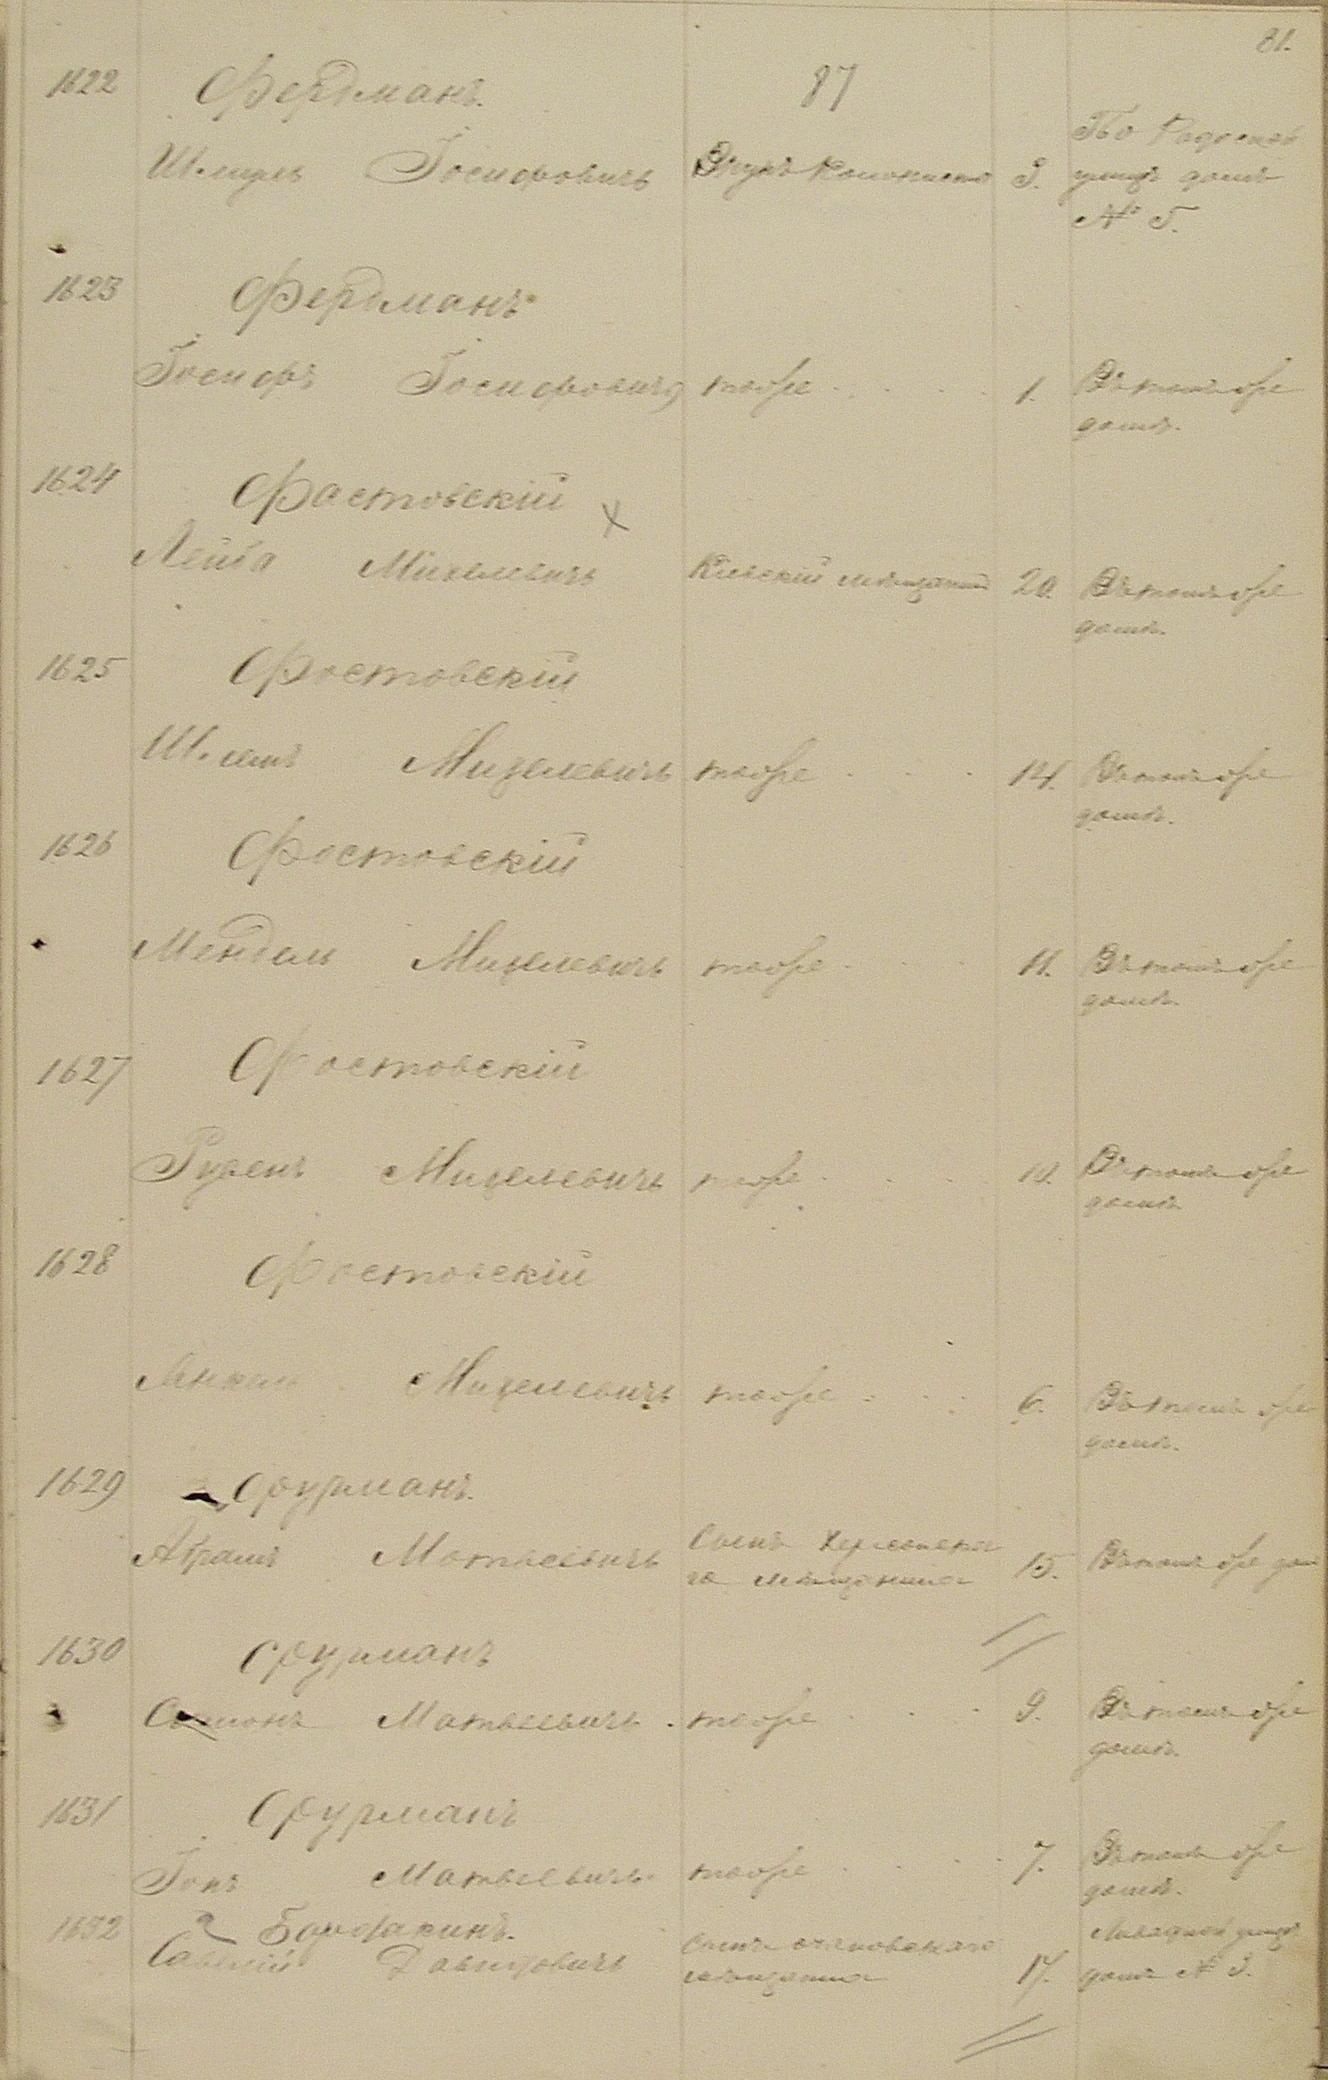 81.
87
1622 Фердманъ.
Шмуль Іосифовичъ Внукъ Колониста 3. По
улицѣ домъ
№ 5.
1623 Фердманъ
Іосифъ Іосифовичъ тоже 1. Въ томъ же
домѣ.
1624 Фастовскій
Лейба Михелевичъ Кіевскій мѣщанинъ 20. Въ томъ же
домѣ.
1625 Фастовскій
Шлема Михелевичъ тоже 14. Въ томъ же
домѣ.
1626 Фастовскій
Мендель Михелевичъ тоже 11. Въ томъ же
домѣ.
1627 Фастовскій
Рувенъ Михелевичъ тоже 10. Въ томъ же
домѣ
1628 Фастовскій
Янкель Михелевичъ тоже 6. Въ томъ же
домѣ.
1629 Фурманъ.
Абрамъ Матвѣевичъ Сынъ Херсонска
го мѣщанина 15. Въ томъ же дом
1630 Фурманъ
Матвѣевичъ тоже 9. Въ томъ же
домѣ.
1631 Фурманъ
Матвѣевичъ тоже 7. Въ томъ же
домѣ.
1632
Савелій Давидовичъ Сынъ очаковскаго
мѣщанина 17. улицѣ
домъ № 3.